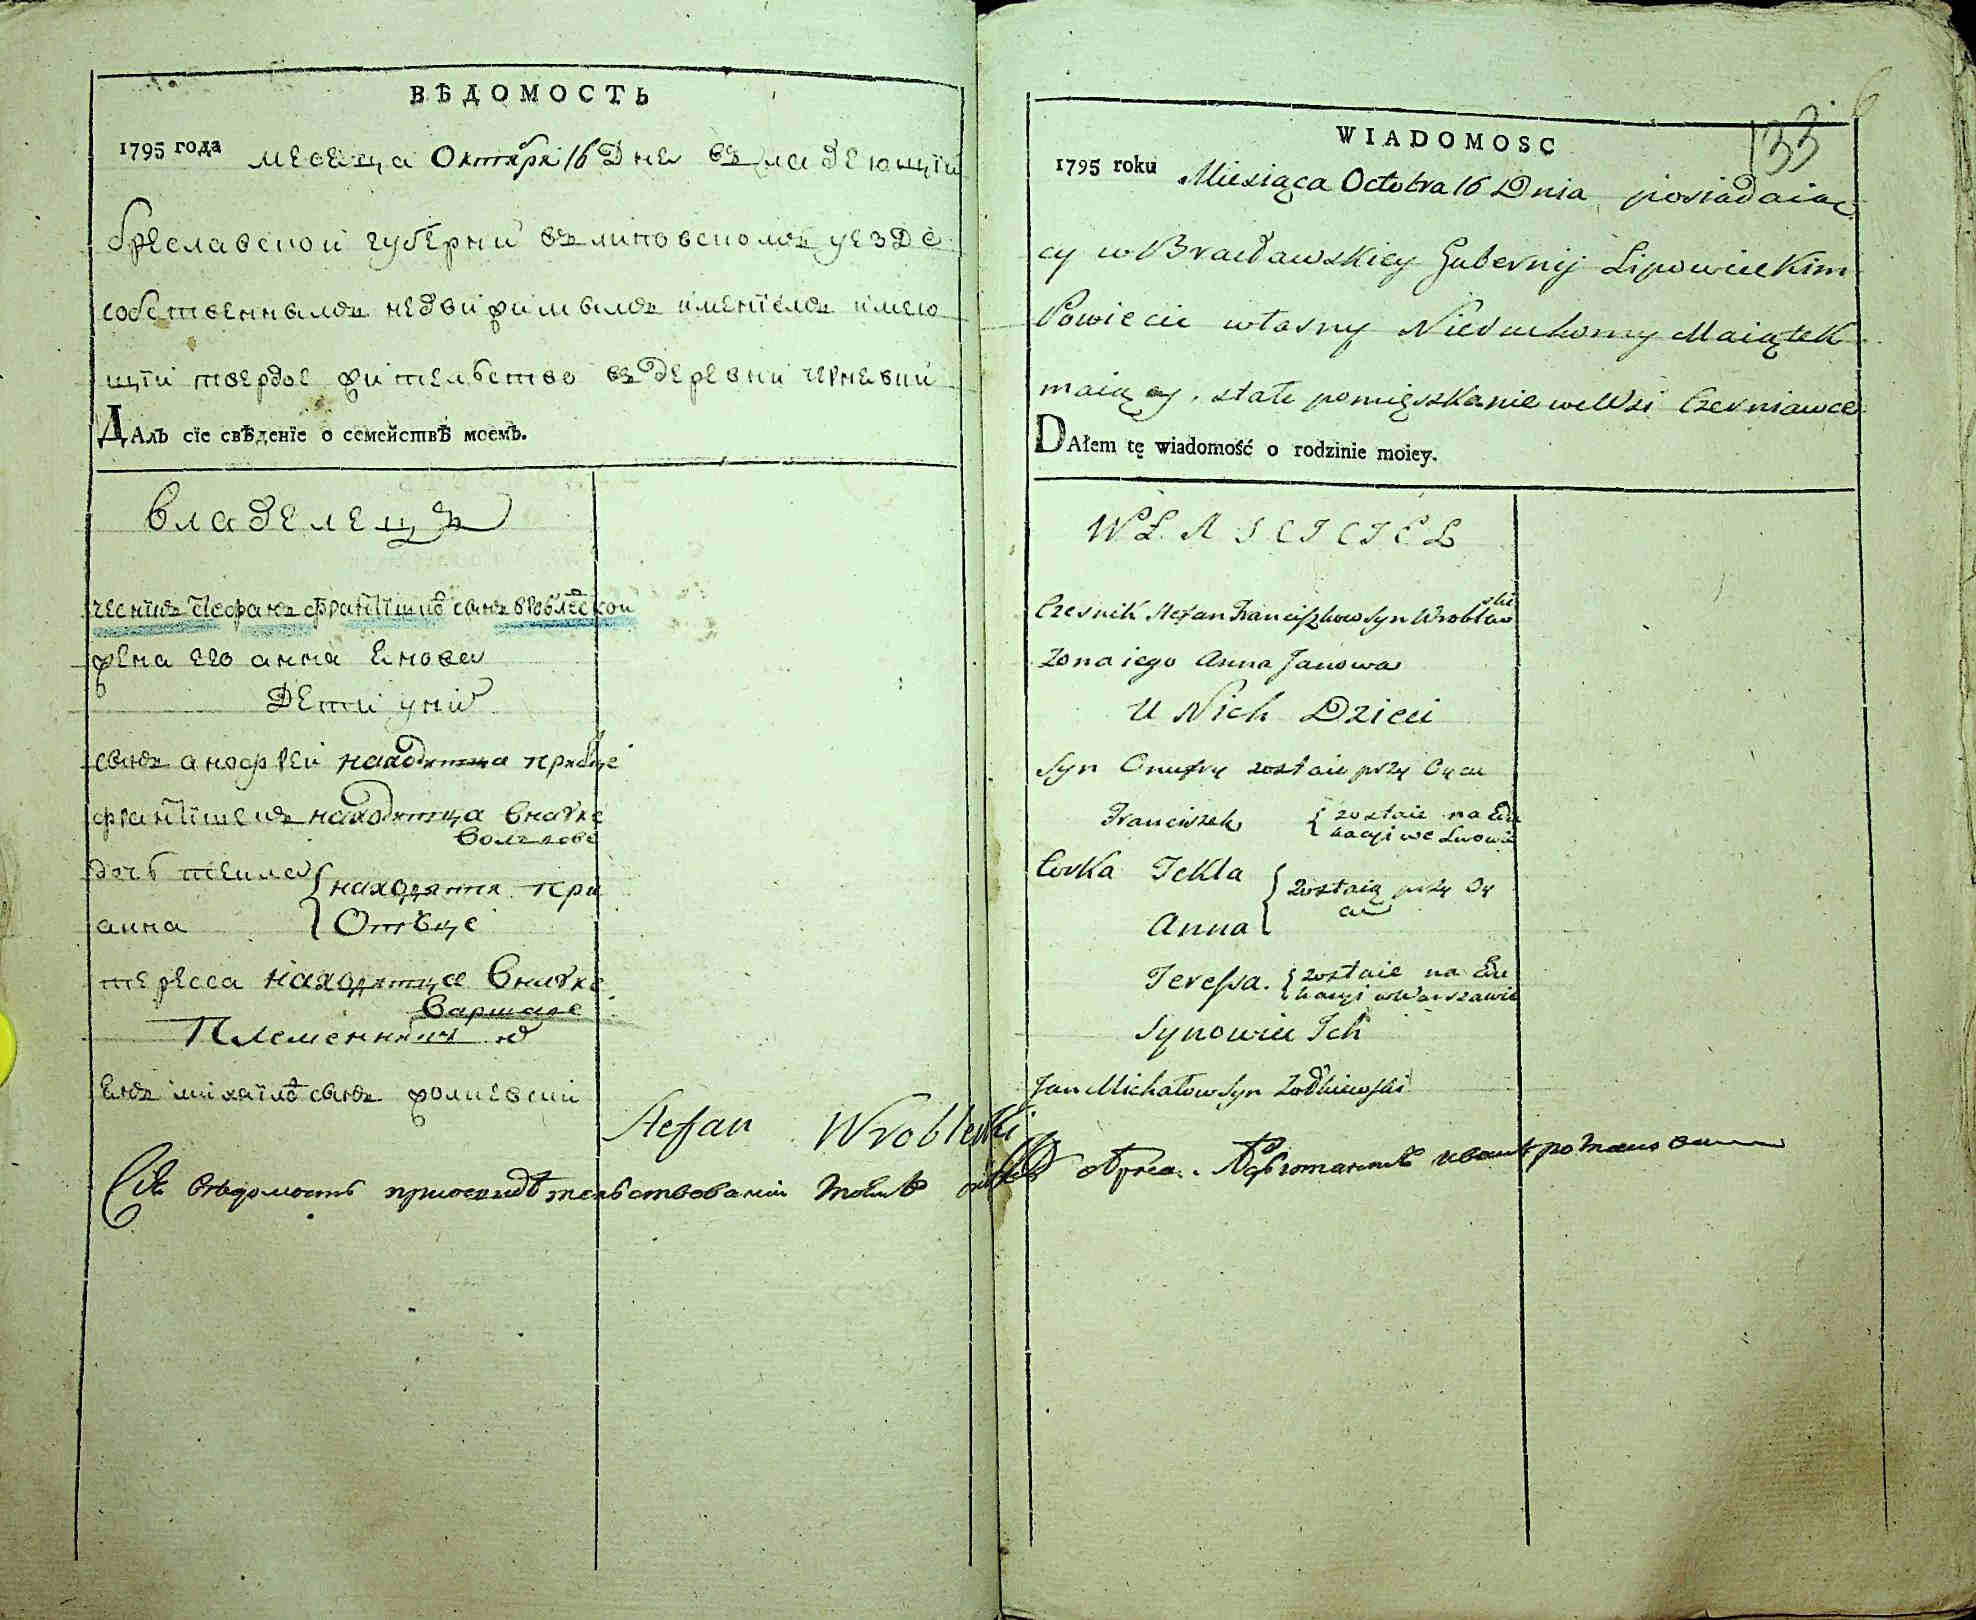 ВѢДОМОСТЬ
1795 года месеца Октября 16 Дня владеющїи
бреславской губернии влиповскомъ уезде
собственнымъ недвижимымъ именїемъ имею
щїи твердое жительство въ деревни чернявки
ДАлЪ сїе свѣденїе о семействѣ моемъ.
владелецъ
чесникъ Стефанъ францишковъ сынъ вроблескои
жена его анна Янова
Дети у них
сынъ анофреи находитца при отце
францишекъ находитца внауке
дочь текла находятся при
анна Отъце
тересса находитца внауке
Варшаве
Племенникъ
Янъ михаиловъ сынъ
Stefan Wroblewski
WIADOMOSC
133
6
1795 roku Miesiąca Octobra 16 Dnia posiadaiąc
cy w Bracławskiey Gubernij Lipowieckim
Powiecie własny Nieruchomy Maiątek
maiący, stałe pomięszkanie we Wsi Czerniawce
DAłem tę wiadomość o rodzinie moiey.
WŁASCICIEL
Czesnik Stefan Franciszkow Syn Wroblewski
Zona iego Anna Janowa
U Nich Dzieci
Syn Onufry zostaie przy Oycu
Franciszek zostaie na Edu
kacyi we Lwowie
Corka Tekla zostaią przy Oy
cu
Anna
Teressa. zostaie na Edu
kacyi w Warszawie
Synowiec Ich
Jan Michałow Syn
Сїю Ведомость при освидѣтельствовании